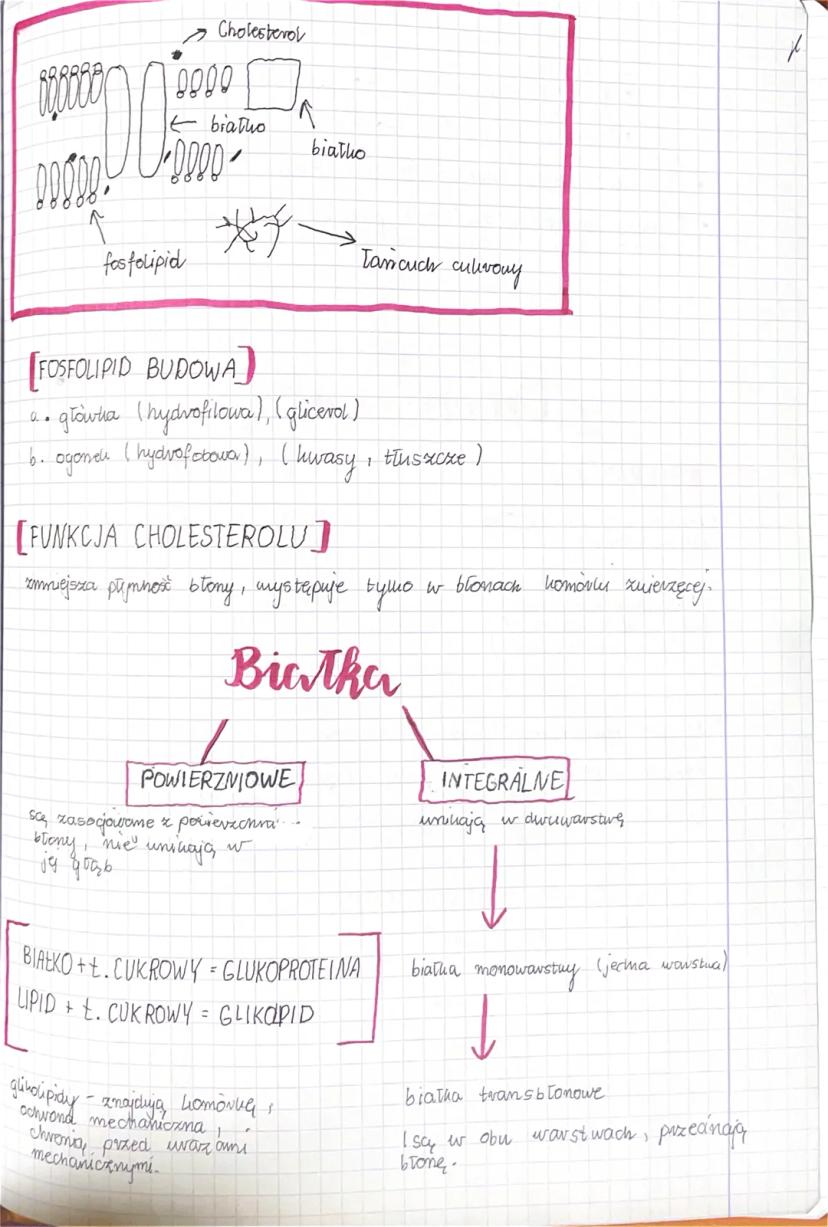 Cholesterol
białko
białko
fosfolipid
Łańcuch cukrowy
[FOSFOLIPID BUDOWA]
a. główka (hydrofilowa), (glicerol)
b. ogonek (hydrofobowa), (kwasy, tłuszcze)
[FUNKCJA CHOLESTEROLU]
zmniejsza płynność błony, występuje tylko w błonach komórki zwierzęcej.
Białka
POWIERZNIOWE
są zasocjowane z powierzchni
błony, nie wnikają w
ją głąb
INTEGRALNE
wnikają w dwuwarstwę
białka monowarstwy (jedna warstwa)
białka transbłonowe
(są w obu warstwach, przecinają
błonę.
BIAŁKO + Ł. CUKROWY = GLUKOPROTEINA
LIPID + Ł. CUKROWY = GLIKOLIPID
glikolipidy - znajdują komórkę,
ochrona mechaniczna,
chronią przed urazami
mechanicznymi.